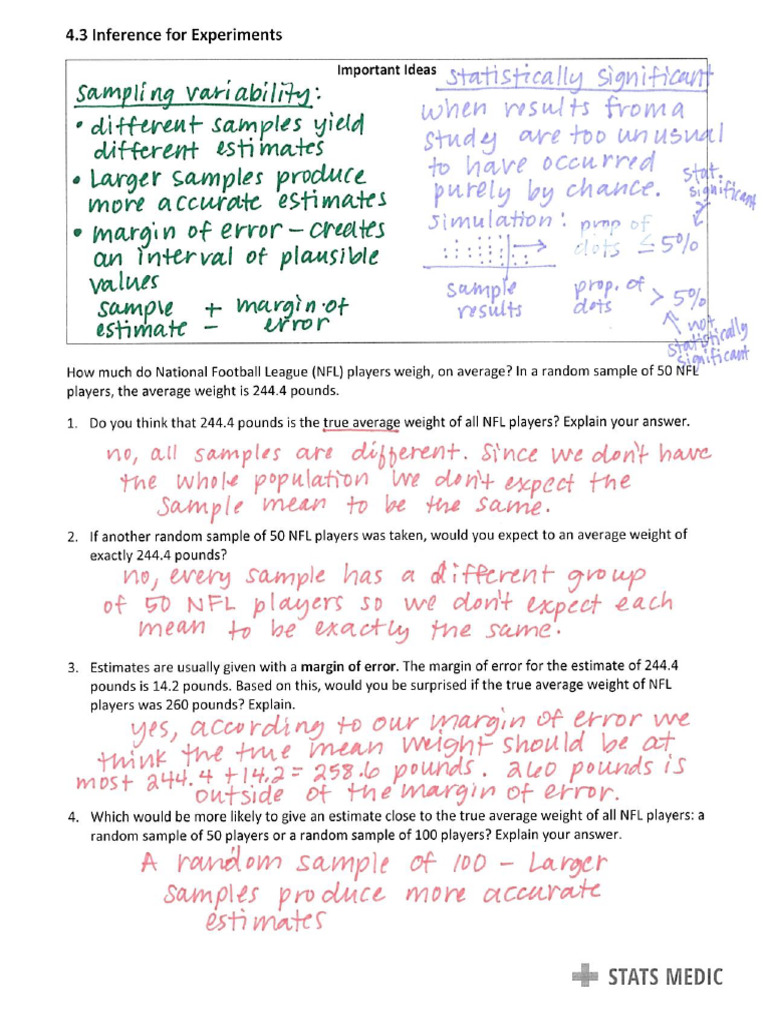 4.3 Inference for Experiments
Important Ideas
Sampling variability:
• different samples yield
different estimates
• Larger samples produce
more accurate estimates
• margin of error – creates
an interval of plausible
values
sample + margin of
estimate – error
Statistically significant
when results from a
study are too unusual
to have occurred
purely by chance.
stat.
significant
simulation: prop of
dots ≤ 5%
sample prop. of
results dots > 5%
not
statistically
significant
How much do National Football League (NFL) players weigh, on average? In a random sample of 50 NFL
players, the average weight is 244.4 pounds.
1. Do you think that 244.4 pounds is the true average weight of all NFL players? Explain your answer.
no, all samples are different. Since we don't have
the whole population we don't expect the
sample mean to be the same.
2. If another random sample of 50 NFL players was taken, would you expect to an average weight of
exactly 244.4 pounds?
no, every sample has a different group
of 50 NFL players so we don't expect each
mean to be exactly the same.
3. Estimates are usually given with a margin of error. The margin of error for the estimate of 244.4
pounds is 14.2 pounds. Based on this, would you be surprised if the true average weight of NFL
players was 260 pounds? Explain.
yes, according to our margin of error we
think the true mean weight should be at
most 244.4 + 14.2 = 258.6 pounds. 260 pounds is
outside of the margin of error.
4. Which would be more likely to give an estimate close to the true average weight of all NFL players: a
random sample of 50 players or a random sample of 100 players? Explain your answer.
A random sample of 100 – Larger
samples produce more accurate
estimates
STATS MEDIC